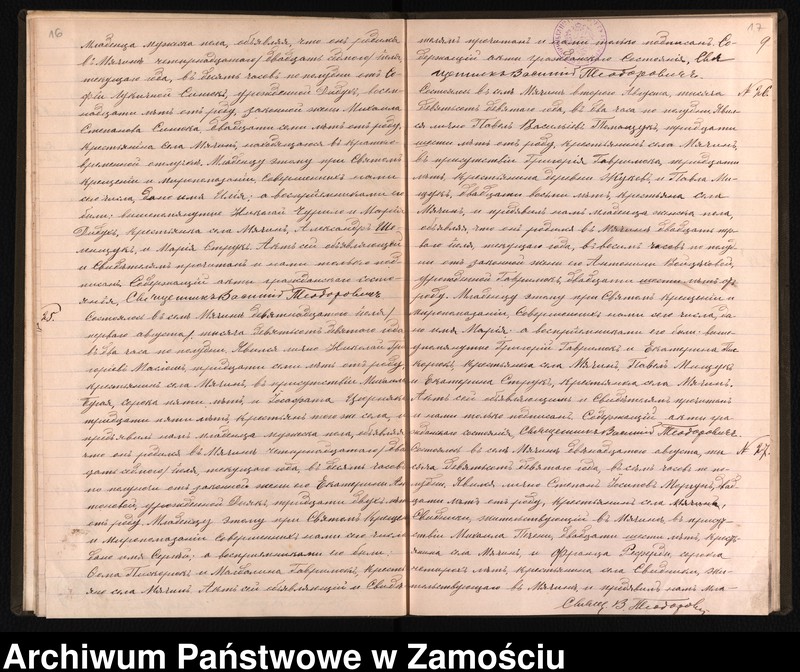 16
младенца мужска пола, объявляя, что онъ родился
въ Мячинѣ четырнадцатаго/двадцать седьмого/ Іюля
текущаго года, въ десять часовъ по полудни отъ Со-
фіи Лукичной Симикъ, урожденной Дзѣдукъ, восем-
надцати лѣтъ отъ роду, законной жены Михаила
Степанова Симика, двадцати семи лѣтъ отъ роду,
крестьянина села Мячинъ, находящагося въ кратко-
временной отлучкѣ. Младенцу этому при Святомъ
Крещеніи и миропомазаніи, совершенныхъ нами
сего числа, дано имя Илія; а воспріемниками его
были: вышеупомянутые Николай Чурило и Марія
крестьянка села Мячинъ, Александръ
и Марія Струкъ. Актъ сей объявляющей
и Свидѣтелямъ прочитанъ и нами только под-
писанъ. Содержащій акты гражданскаго состо-
янія, Священникъ Василій Теодоровичъ
25.
Состоялось въ селѣ Мячинѣ девятнадцатого Іюля/
перваго августа/ тысяча девятьсотъ девятаго года
въ два часа по полудни. Явился лично Николай Гри-
горіевъ тридцати семи лѣтъ отъ роду,
крестьянинъ села Мячинъ, въ присутствіи Михаила
сорока пяти лѣтъ и Іосафата
тридцати пяти лѣтъ, крестьянъ того же села, и
предъявилъ намъ младенца мужска пола, объявляя
что онъ родился въ Мячинѣ четырнадцатаго/два-
дцать седьмого/ Іюля, текущаго года, въ десять часовъ
по полуночи отъ законной жены его Екатерины Ан-
тоновой, урожденной тридцати двухъ лѣтъ
отъ роду. Младенцу этому при Святомъ Креще-
и Миропомазаніи совершенныхъ нами сего числа
дано имя Сергѣй; а воспріемниками его были:
и Магдалина Гаврилюкъ, кресть-
яне села Мячинъ. Актъ сей объявляющей и Свидѣ-
17
9
телямъ прочитанъ и нами только подписанъ. Со-
держащій акты гражданскаго Состоянія, Свя-
щенникъ Василій Теодоровичъ.
№ 26.
Состоялось въ селѣ Мячинѣ второго Августа, тысяча
девятьсотъ девятаго года, въ два часа по полудни. Явил-
ся лично Павелъ Васильевъ тридцати
шести лѣтъ отъ роду, крестьянинъ села Мячинъ,
въ присутствіи Григорія Гаврилюка, тридцати
лѣтъ, крестьянина деревни Жуковъ, и Павла Ми-
щукъ, двадцати восьми лѣтъ, крестьянъ села
Мячинъ, и предъявилъ намъ младенца женска пола,
объявляя, что она родилась въ Мячинѣ двадцать пер-
ваго Іюля, текущаго года, въ восемь часовъ по полу-
дни отъ законной жены его Антонины
урожденной Гаврилюкъ, двадцати шести лѣтъ отъ
роду. Младенцу этому при Святомъ Крещеніи и
миропомазаніи, Совершенныхъ нами сего числа, да-
но имя Марія; а воспріемниками его были: выше-
упомянутые Григорій Гаврилюкъ и Екатерина
крестьянка села Мячинъ, Павелъ Мищукъ
и Екатерина Струкъ, крестьянка села Мячинъ.
Актъ сей объявляющимъ и Свидѣтелямъ прочитанъ
и нами только подписанъ. Содержащій акты гра-
жданскаго состоянія, Священникъ Василій Теодоровичъ.
№ 27.
Состоялось въ селѣ Мячинѣ двѣнадцатаго августа, ты-
сяча девятьсотъ девятаго года, въ семь часовъ по по-
лудни. Явился лично Степанъ Іосифовъ двад-
цати лѣтъ отъ роду, крестьянинъ села
Свидники, жительствующій въ Мячинѣ, въ присут-
ствіи Михаила двадцати шести лѣтъ, кресть-
янина села Мячинъ, и Франца сорока
четырехъ лѣтъ, крестьянина села Свидники, жи-
тельствующаго въ Мячинѣ, и предъявилъ намъ мла-
Свящ. В. Теодорович
Archiwum Państwowe w Zamościu